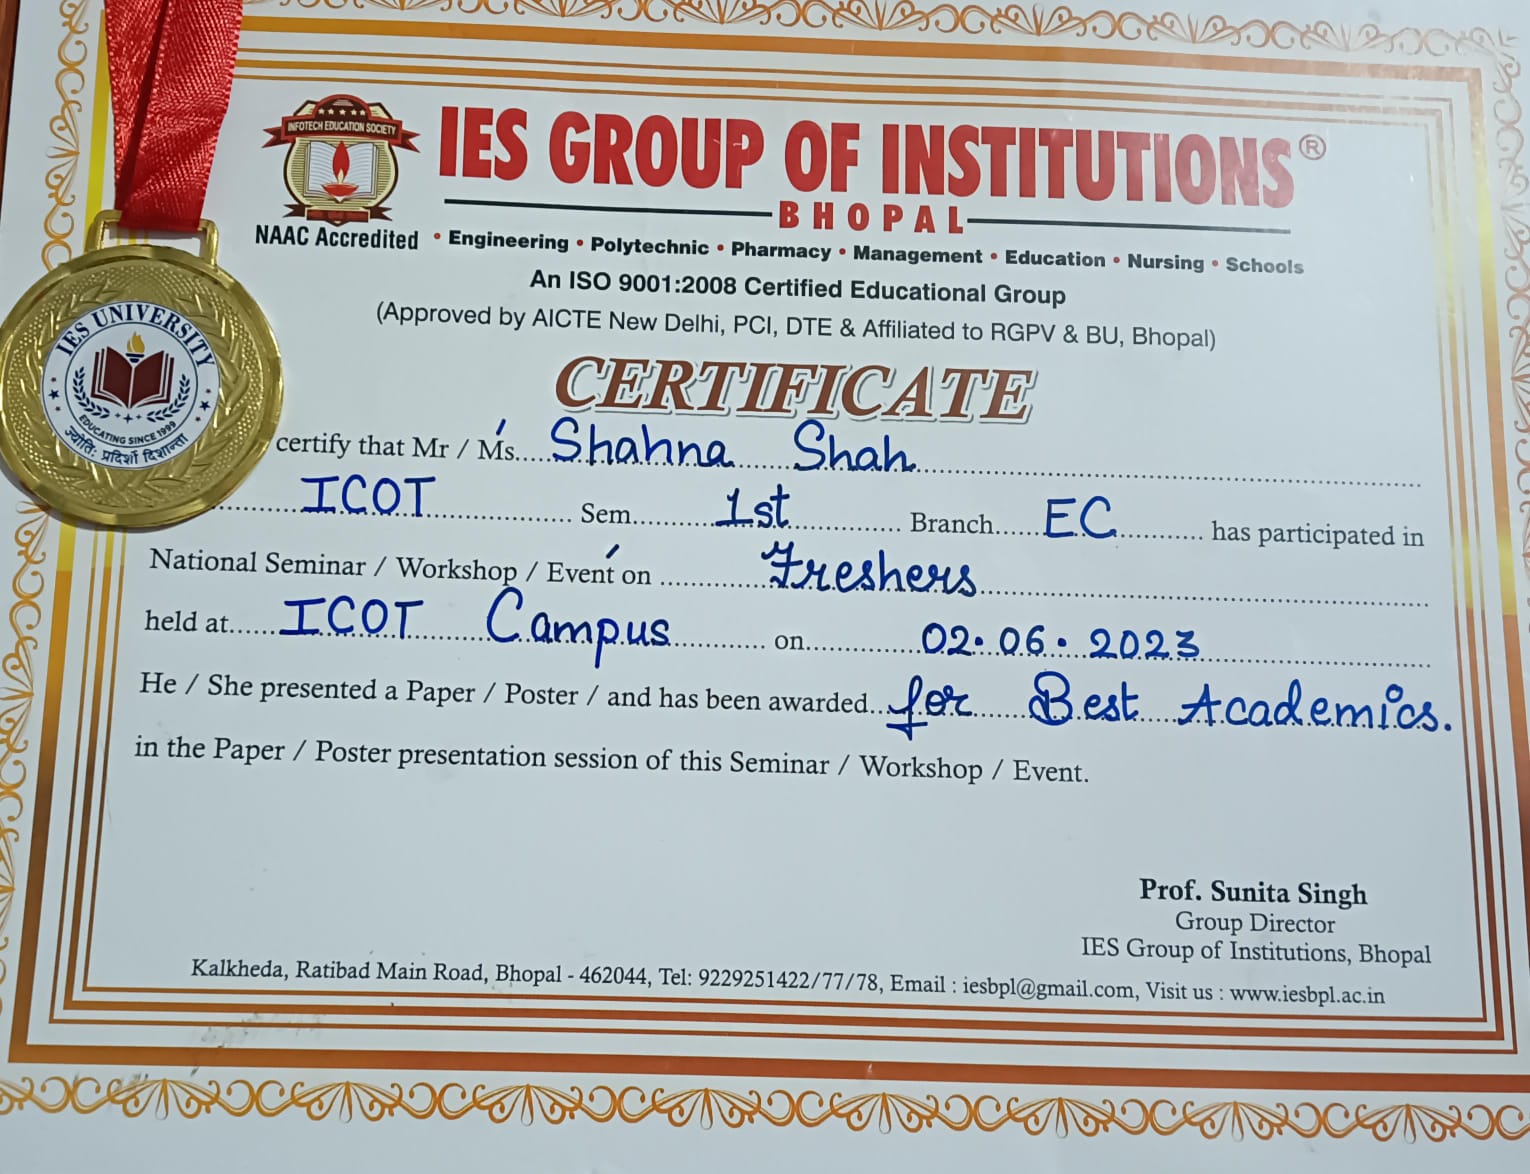 INFOTECH EDUCATION SOCIETY
IES GROUP OF INSTITUTIONS®
BHOPAL
NAAC Accredited • Engineering • Polytechnic • Pharmacy • Management • Education • Nursing • Schools
An ISO 9001:2008 Certified Educational Group
(Approved by AICTE New Delhi, PCI, DTE & Affiliated to RGPV & BU, Bhopal)
IES UNIVERSITY
EDUCATING SINCE 1999
ज्योतिः प्रदिर्शो दिशान्ता
CERTIFICATE
certify that Mr / Ms. Shahna Shah
ICOT Sem. 1st Branch EC has participated in
National Seminar / Workshop / Event on Freshers
held at ICOT Campus on 02.06.2023
He / She presented a Paper / Poster / and has been awarded for Best Academics.
in the Paper / Poster presentation session of this Seminar / Workshop / Event.
Prof. Sunita Singh
Group Director
IES Group of Institutions, Bhopal
Kalkheda, Ratibad Main Road, Bhopal - 462044, Tel: 9229251422/77/78, Email : iesbpl@gmail.com, Visit us : www.iesbpl.ac.in